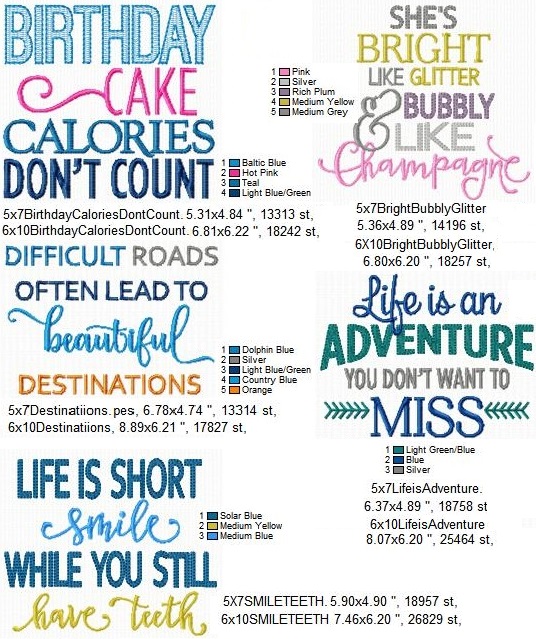 BIRTHDAY
CAKE
CALORIES
DON'T COUNT
1 Baltic Blue
2 Hot Pink
3 Teal
4 Light Blue/Green
5x7BirthdayCaloriesDontCount. 5.31x4.84 ", 13313 st,
6x10BirthdayCaloriesDontCount. 6.81x6.22 ", 18242 st,
SHE'S
BRIGHT
LIKE GLITTER
& BUBBLY
LIKE
Champagne
1 Pink
2 Silver
3 Rich Plum
4 Medium Yellow
5 Medium Grey
5x7BrightBubblyGlitter
5.36x4.89 ", 14196 st,
6X10BrightBubblyGlitter,
6.80x6.20 ", 18257 st,
DIFFICULT ROADS
OFTEN LEAD TO
beautiful
DESTINATIONS
1 Dolphin Blue
2 Silver
3 Light Blue/Green
4 Country Blue
5 Orange
5x7Destinatiions.pes, 6.78x4.74 ", 13314 st,
6x10Destinatiions, 8.89x6.21 ", 17827 st,
Life is an
ADVENTURE
YOU DON'T WANT TO
MISS
1 Light Green/Blue
2 Blue
3 Silver
5x7LifeisAdventure.
6.37x4.89 ", 18758 st
6x10LifeisAdventure
8.07x6.20 ", 25464 st,
LIFE IS SHORT
smile
WHILE YOU STILL
have teeth
1 Solar Blue
2 Medium Yellow
3 Medium Blue
5X7SMILETEETH. 5.90x4.90 ", 18957 st,
6x10SMILETEETH 7.46x6.20 ", 26829 st,